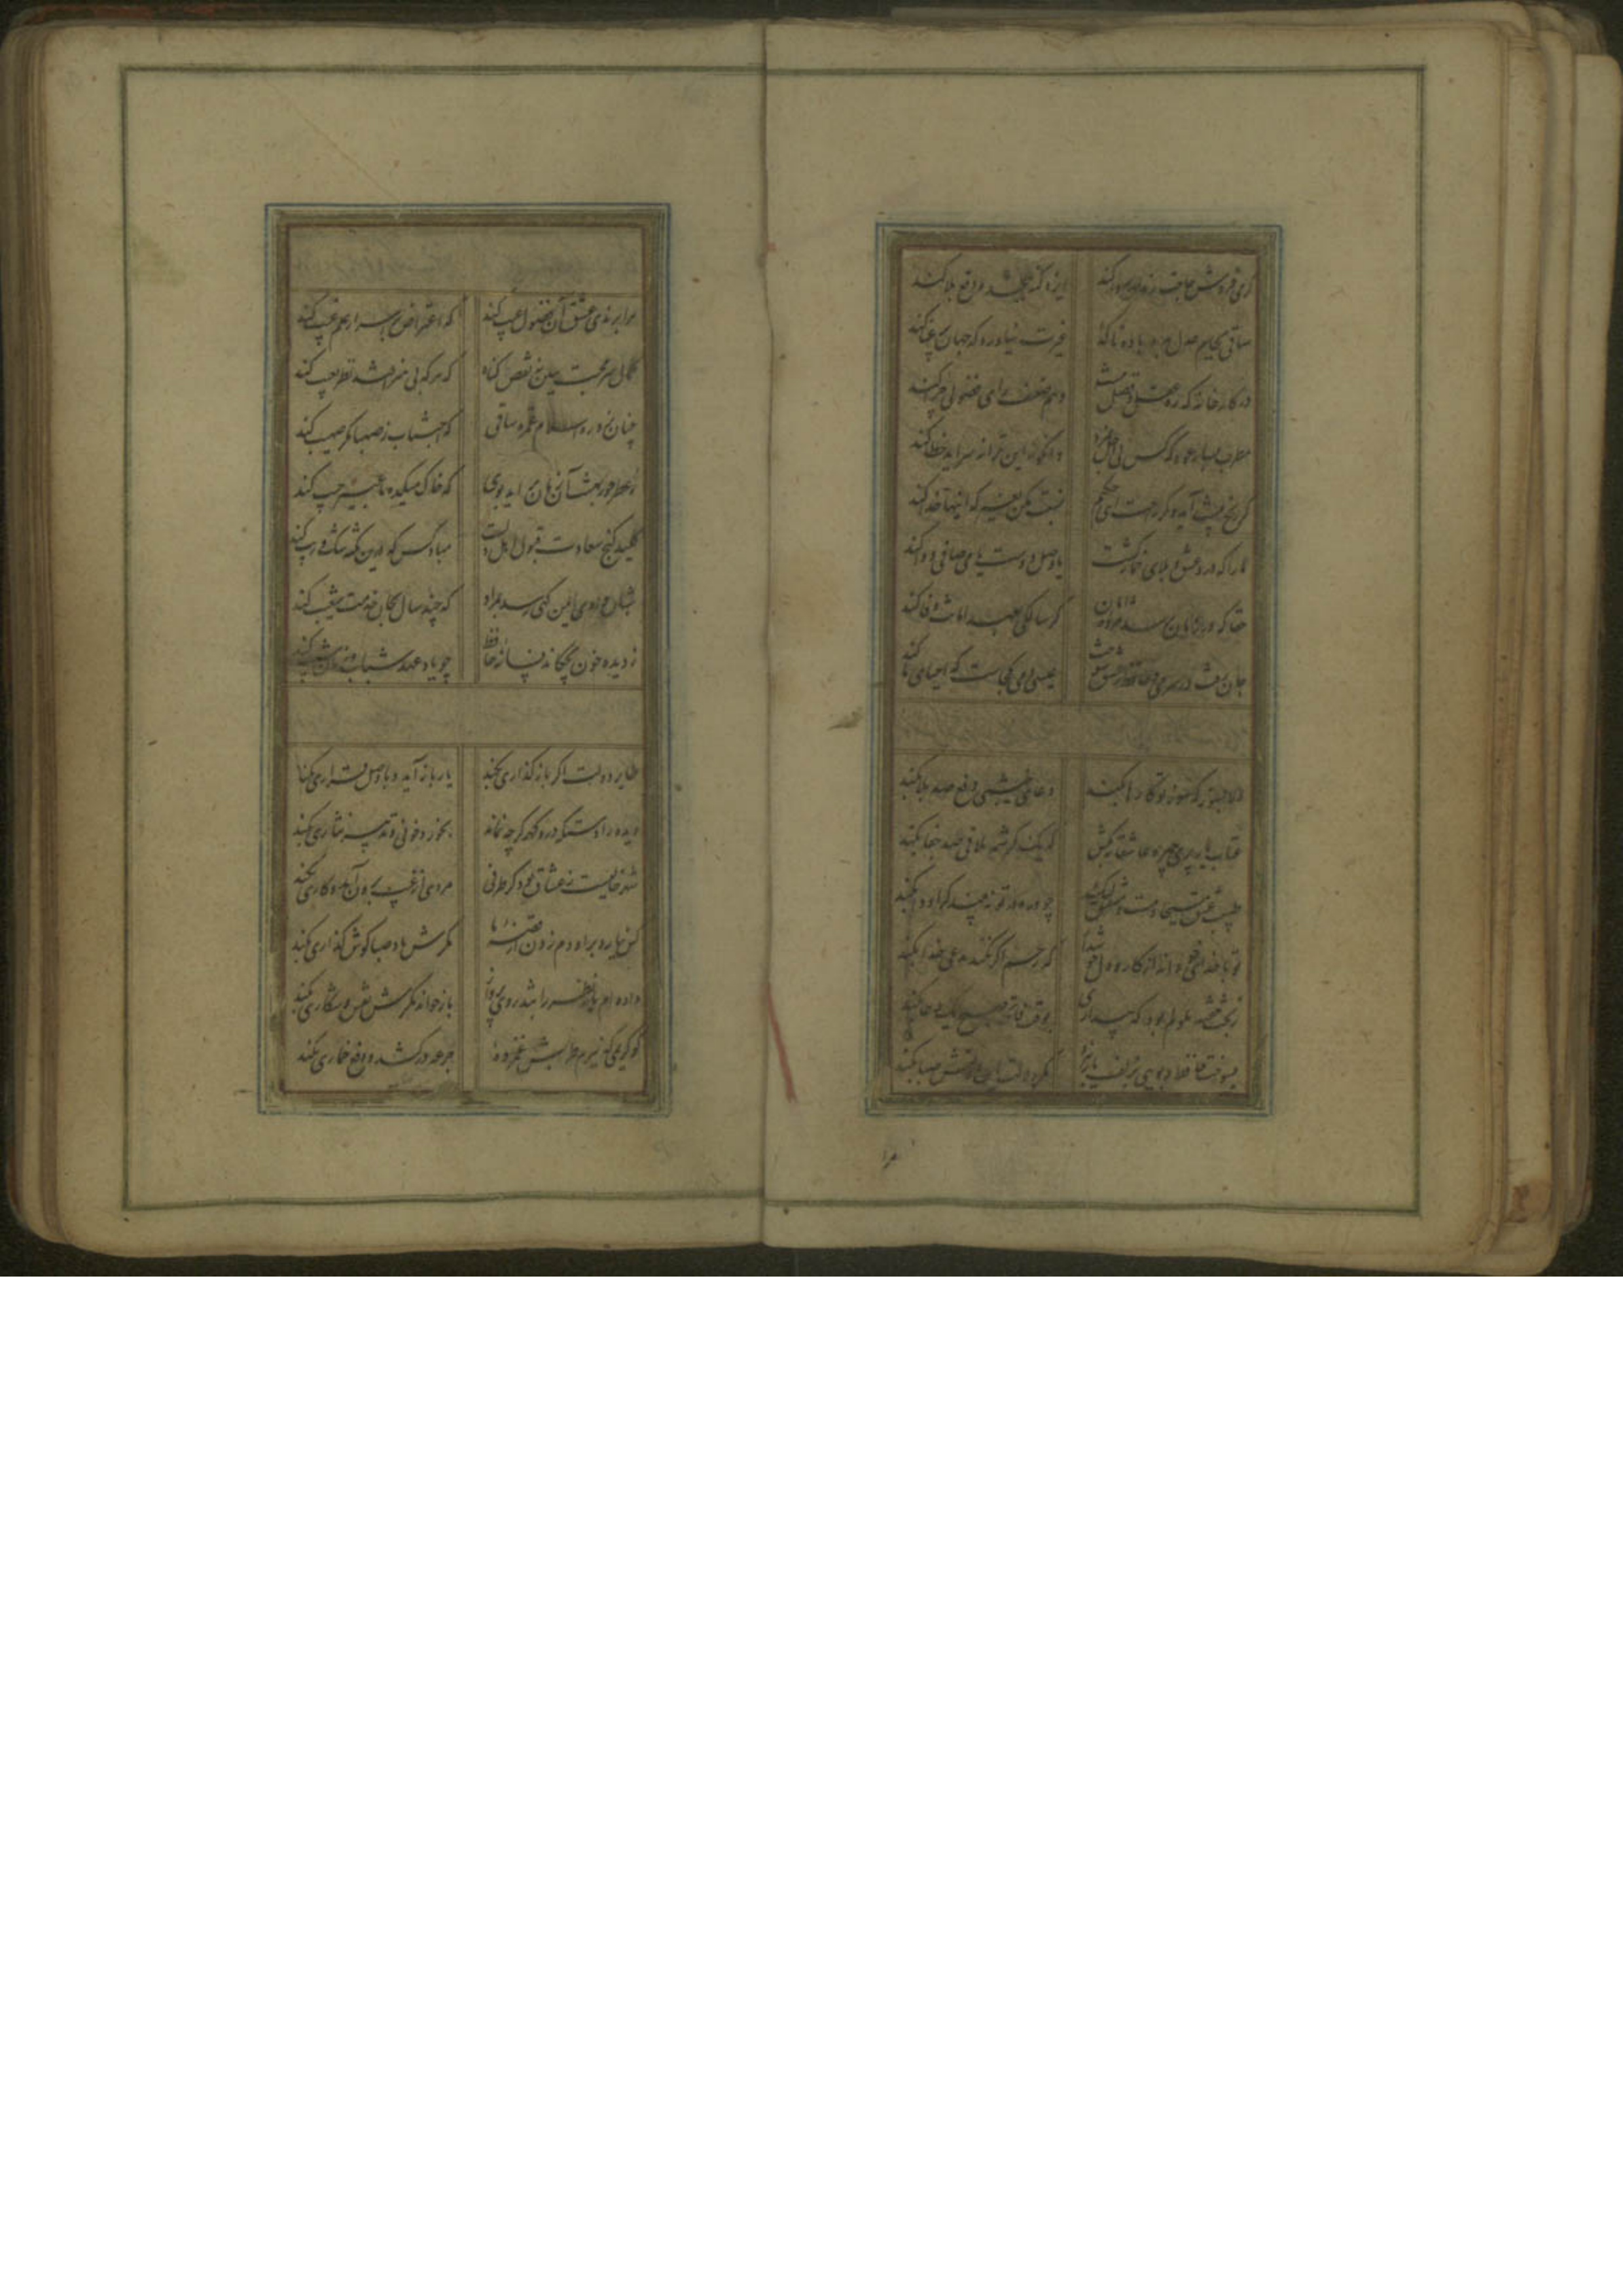 گر می فروش حاجت رندان روا کند ایزد گنه ببخشد و دفع بلا کند
ساقی بجام عدل بده باده تا گدا غیرت نیاورد که جهان پر بلا کند
در کارخانه که ره عقل و فضل نیست وهم ضعیف رای فضولی چرا کند
مطرب بساز عود که کس بی اجل نمرد وانکو نه این ترانه سراید خطا کند
گر رنج پیشت آید و گر راحت ای حکیم نسبت مکن بغیر که اینها خدا کند
ما را که درد عشق و بلای خمار کشت یا وصل دوست یا می صافی دوا کند
حقا که در زمان برسد مژده امان گر سالکی بعهد امانت وفا کند
جان رفت در سر می و حافظ ز عشق سوخت عیسی دمی کجاست که احیای ما کند
دلا بسوز که سوز تو کارها بکند دعای نیم شبی دفع صد بلا بکند
عتاب یار پری چهره عاشقانه بکش که یک کرشمه تلافی صد جفا بکند
طبیب عشق مسیحا دمست و مشفق لیک چو درد در تو نبیند کرا دوا بکند
تو با خدای خود انداز کار و دل خوش دار که رحم اگر نکند مدعی خدا بکند
ز بخت خفته ملولم بود که بیداری بوقت فاتحه صبح یک دعا بکند
بسوخت حافظ و بویی بزلف یار نبرد مگر دلالت این دولتش صبا بکند
مرا
مرا برندی و عشق آن فضول عیب کند که اعتراض بر اسرار علم غیب کند
کمال سر محبت ببین نه نقص گناه که هر که بی هنر افتد نظر بعیب کند
چنان زند ره اسلام غمزه ساقی که اجتناب ز صهبا مگر صهیب کند
ز عطر حور بهشت آن زمان برآید بوی که خاک میکده ما عبیر جیب کند
کلید گنج سعادت قبول اهل دلست مباد کس که درین نکته شک و ریب کند
شبان وادی ایمن گهی رسد بمراد که چند سال بجان خدمت شعیب کند
ز دیده خون بچکاند فسانه حافظ چو یاد عهد شباب و زمان شیب کند
طایر دولت اگر باز گذاری بکند یار باز آید و با وصل قراری بکند
دیده را دستگه در و گهر گرچه نماند بخورد خونی و تدبیر نثاری بکند
شهر خالیست ز عشاق بود کز طرفی مردی از غیب برون آید و کاری بکند
کس نیارد بر او دم زدن از قصه ما مگرش باد صبا گوش گذاری بکند
داده ام باز نظر را بتذروی پرواز باز خواند مگرش نقش و شکاری بکند
کو کریمی که ز بزم طربش غمزده جرعه درکشد و دفع خماری بکند